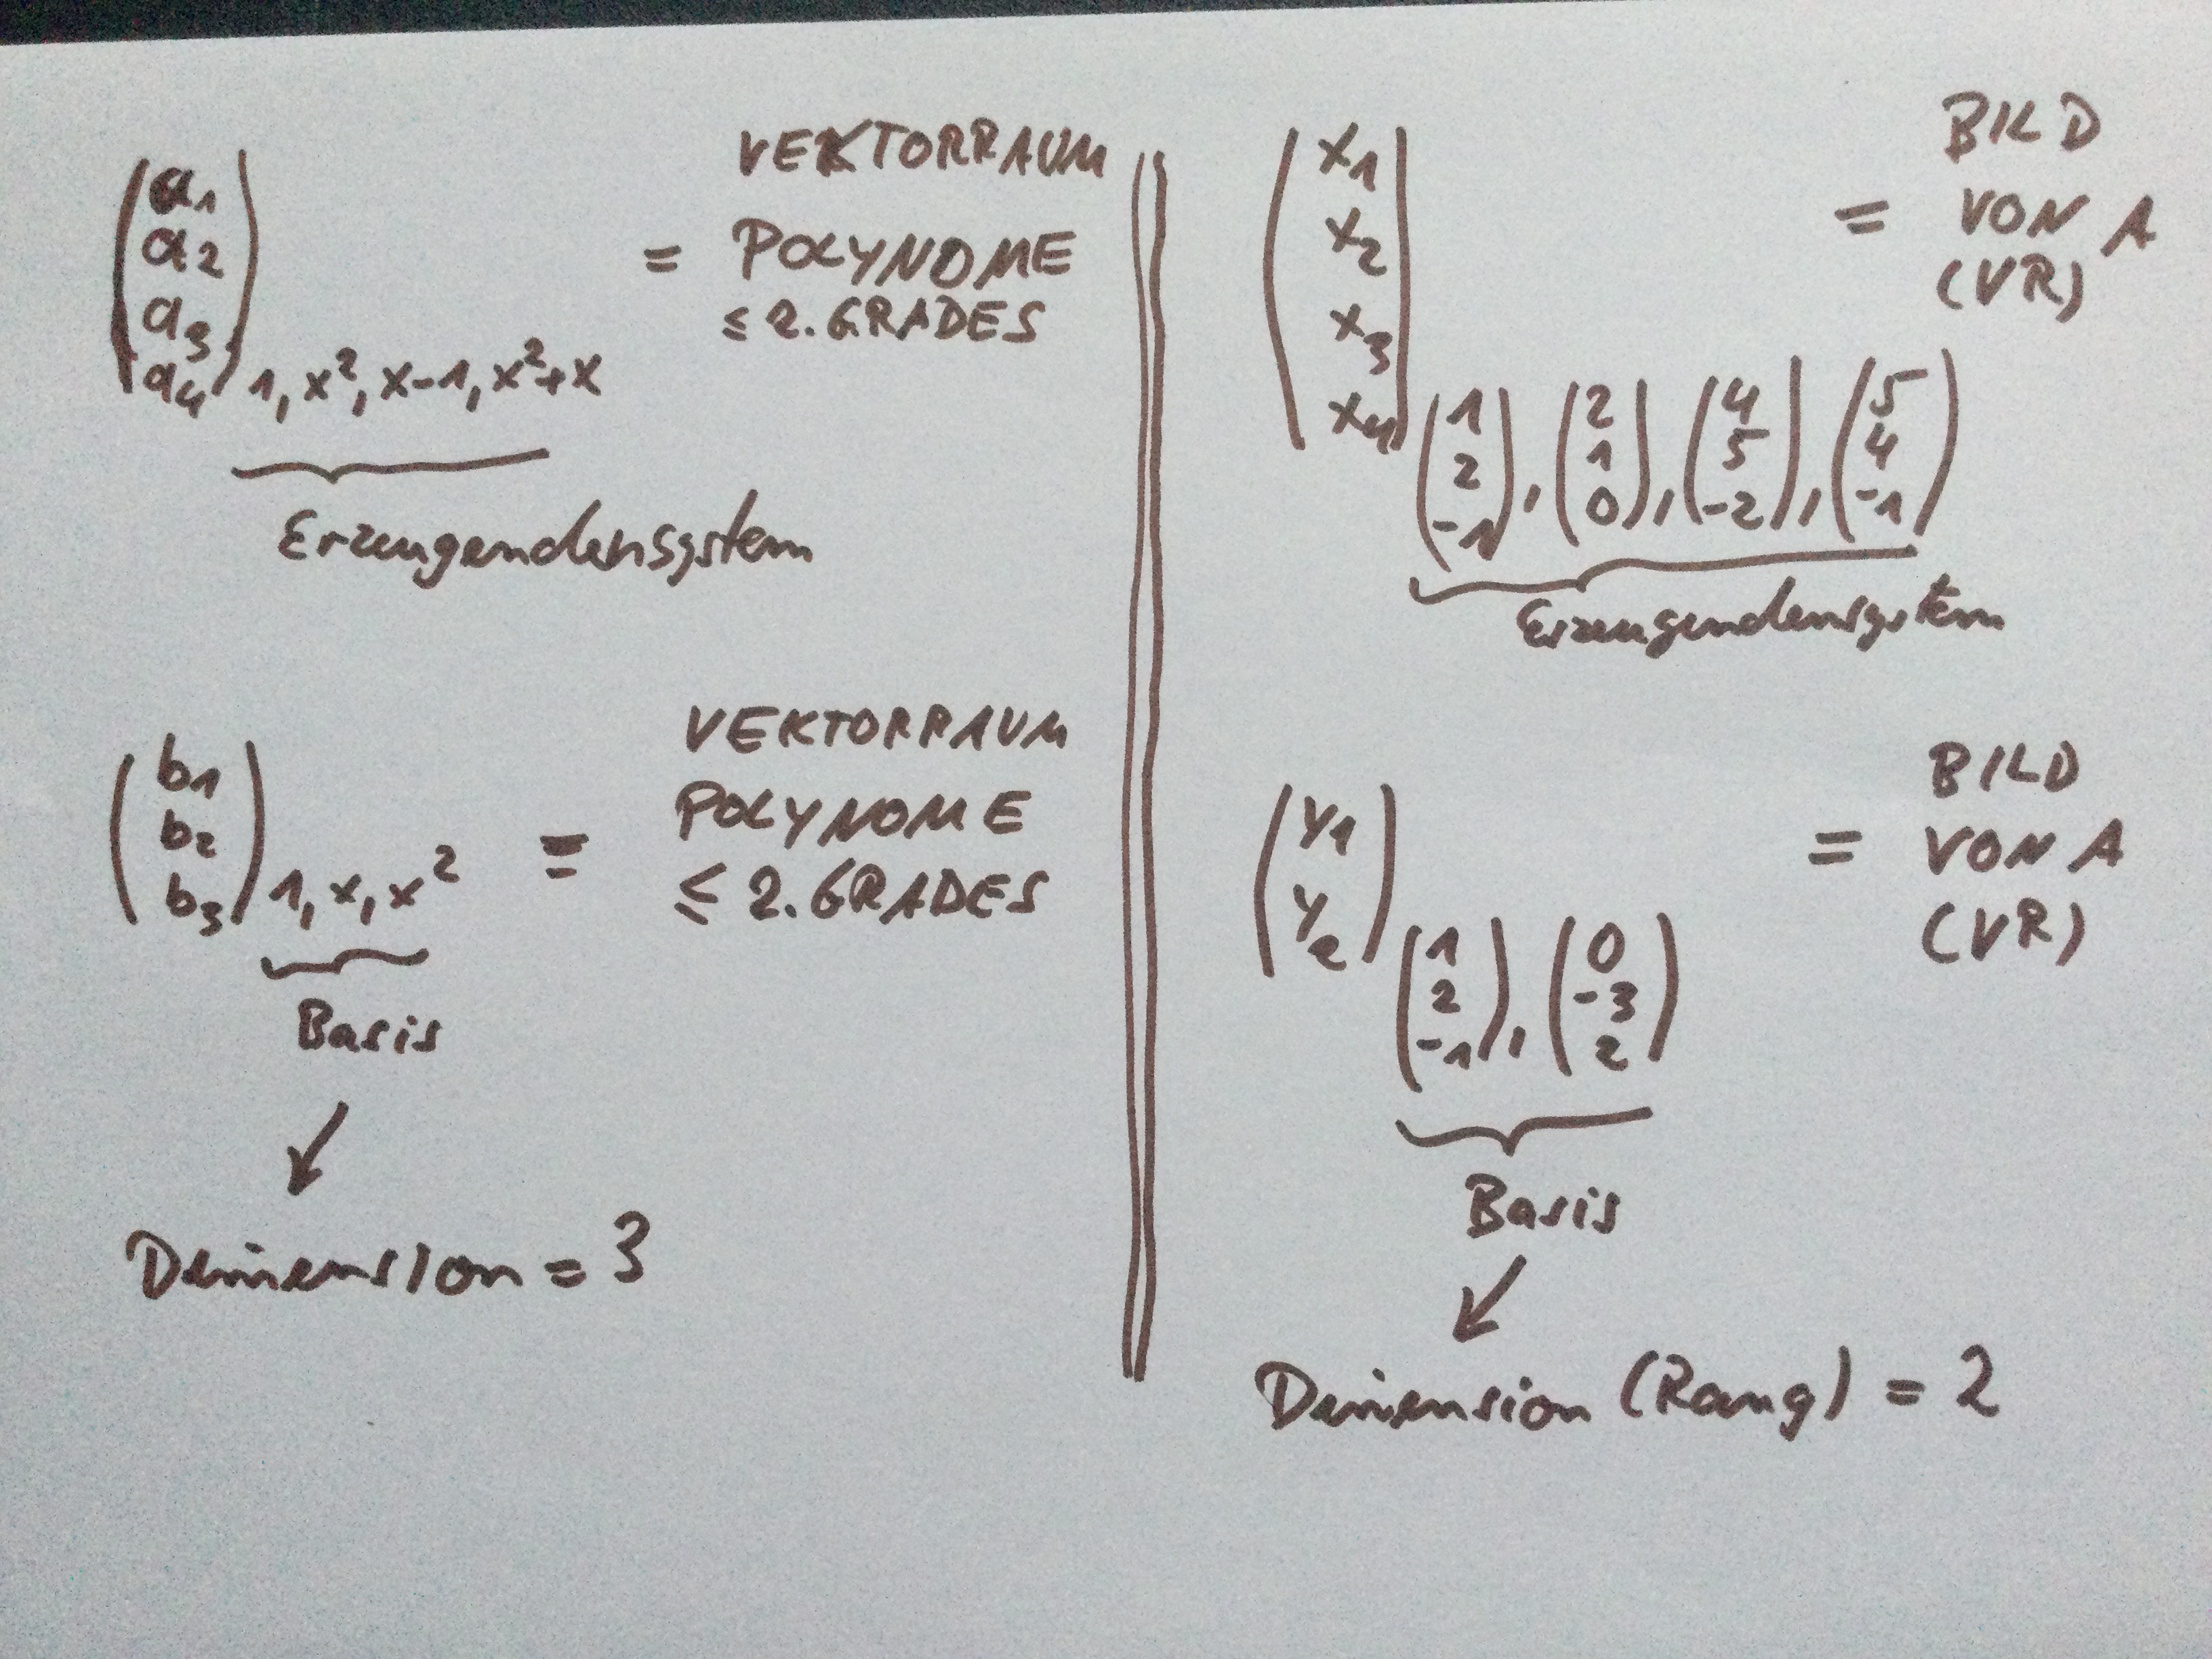 (a1 a2 a3 a4) 1, x², x-1, x²+x = VEKTORRAUM
POLYNOME
≤ 2. GRADES
Erzeugendensystem
(b1 b2 b3) 1, x, x² = VEKTORRAUM
POLYNOME
≤ 2. GRADES
Basis
↙
Dimension = 3
(x1 x2 x3 x4) (1 2 -1), (2 1 0), (4 5 -2), (5 4 -1) = BILD
VON A
(VR)
Erzeugendensystem
(y1 y2) (1 2 -1), (0 -3 2) = BILD
VON A
(VR)
Basis
↙
Dimension (Rang) = 2